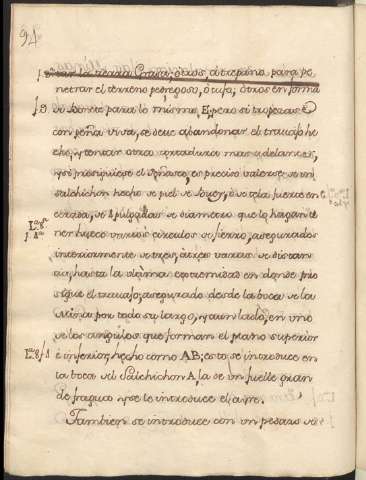 94
tar la tierra Crasa, otros, á trepano para pe
netrar el terreno pedregoso, ó tufo; otros en forma
de Bonete para lo mismo. Epero si tropezase
con peña viva, se deve abandonar el travajo he
cho, y tentar otra cortadura mas adelante,
y si prosiguiese el es preciso valerse de un
salchichon hecho de piel de Buey, ó de tela fuerte en
cerada, de 8 pulgadas de diametro que lo hagan te
ner hueco varios circulos de fierro, asegurados
interiormente de tres, á tres varas de distan
cia, hasta la ultima extremidad en donde pro
sigue el travajo; asegurado desde la boca de la
Mina por todo su largo, y a un lado, en uno
de los angulos que forman el plano superior
é inferior, hecho como AB; esto se introduce en
la boca del Salchichon A, la de un fuelle gran
de fragua y se le introduce el aire.
Tambien se introduce con un pedazo de